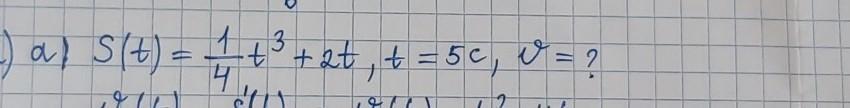 ) a) S(t) = 1/4 t³ + 2t, t = 5c, v = ?